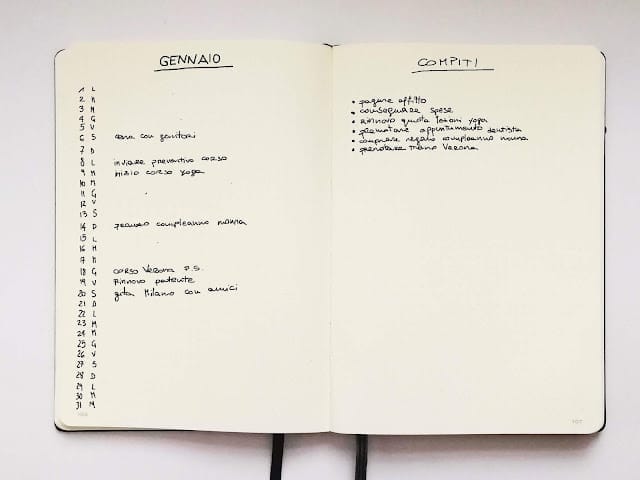 GENNAIO
1 L
2 M
3 M
4 G
5 V
6 S cena con genitori
7 D
8 L inviare preventivo corso
9 M inizio corso yoga
10 M
11 G
12 V
13 S
14 D pranzo compleanno nonna
15 L
16 M
17 M
18 G corso Verona P.S.
19 V Rinnovo patente
20 S gita Milano con amici
21 D
22 L
23 M
24 M
25 G
26 V
27 S
28 D
29 L
30 M
31 M
COMPITI
• pagare affitto
• consegnare spese
• rinnovo quota lezioni yoga
• prenotare appuntamento dentista
• comprare regalo compleanno nonna
• prenotare treno Verona
107